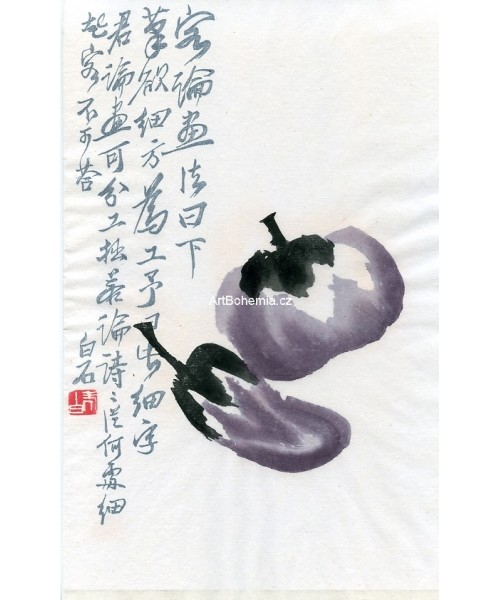 客論畫法曰下
筆欲細方為工予曰細字
君論畫可分工拙若論詩〻從何處細
起客不可答
白石
ArtBohemia.cz